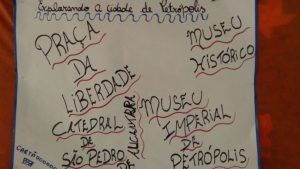 Explorando a Cidade de Petrópolis
PRAÇA
DA
LIBERDADE
CATEDRAL
DE
SÃO PEDRO
DE
ALCANTARA
MUSEU
HISTÓRICO
MUSEU
IMPERIAL
DE
PETRÓPOLIS